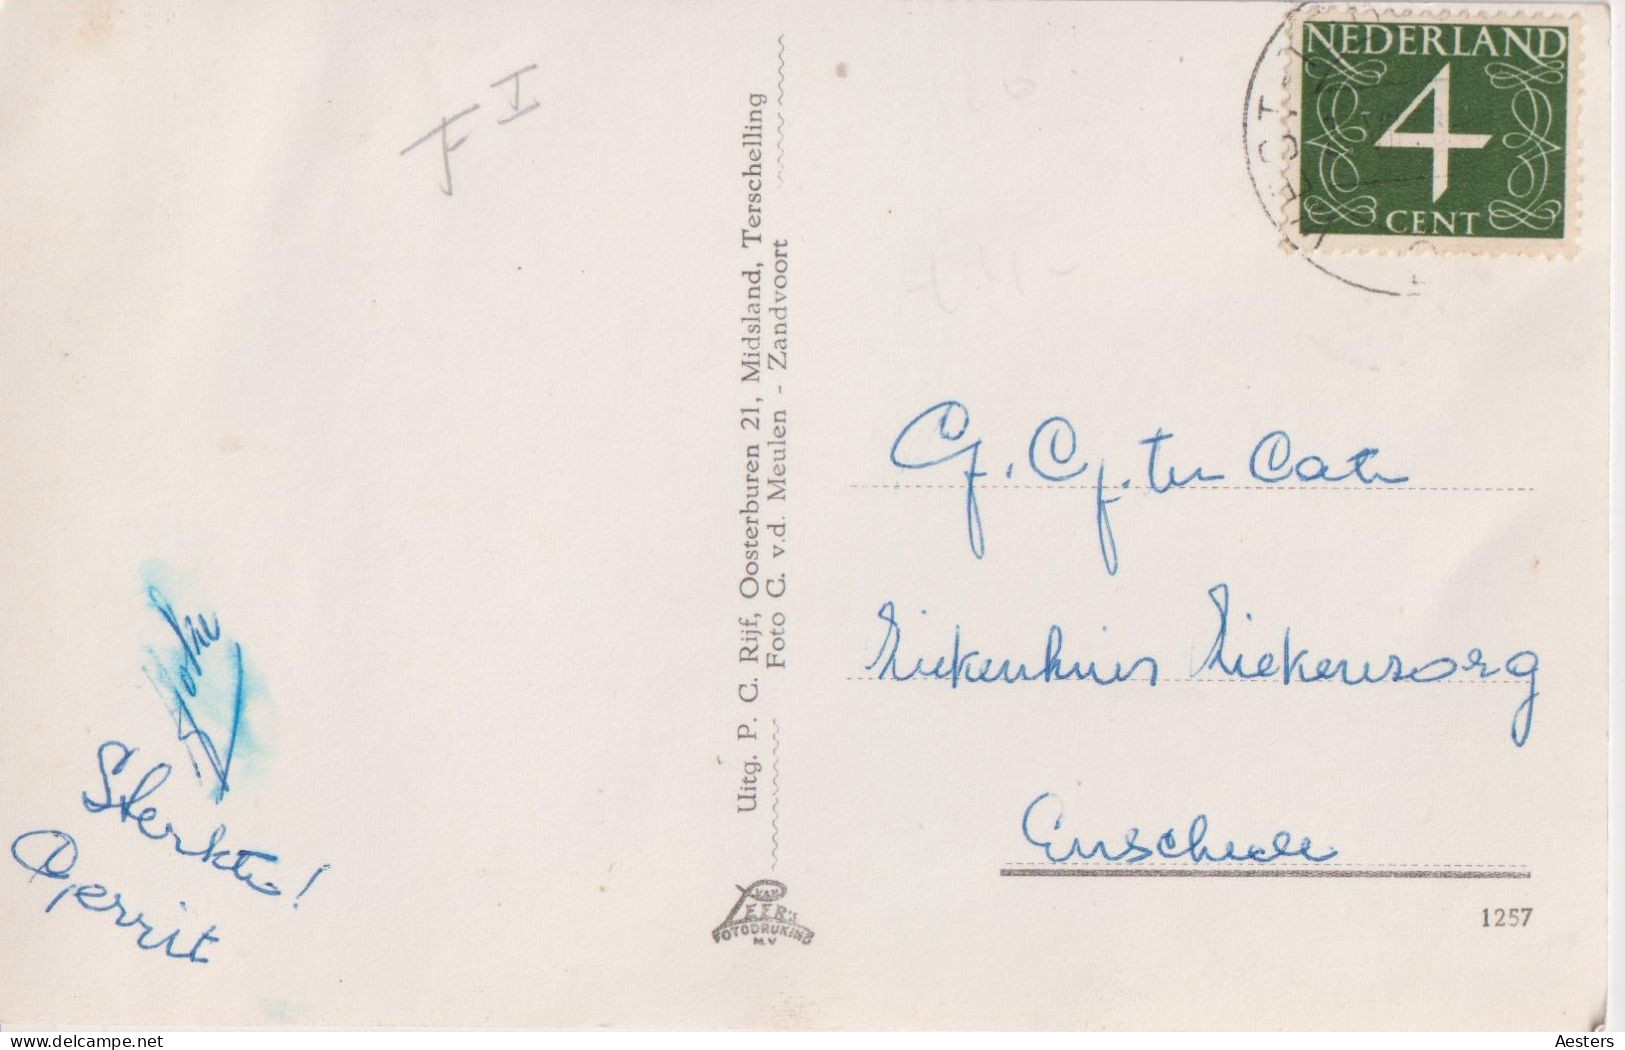 F I
NEDERLAND
4
CENT
WEST-T
Uitg. P. C. Rijf, Oosterburen 21, Midsland, Terschelling
Foto C. v.d. Meulen - Zandvoort
G. G. ten Cate
Ziekenhuis Ziekenzorg
Enschede
Joke
Sterkte!
Gerrit
VAN
LEER's
FOTODRUKIND
N.V
1257
delcampe.net
Aesters